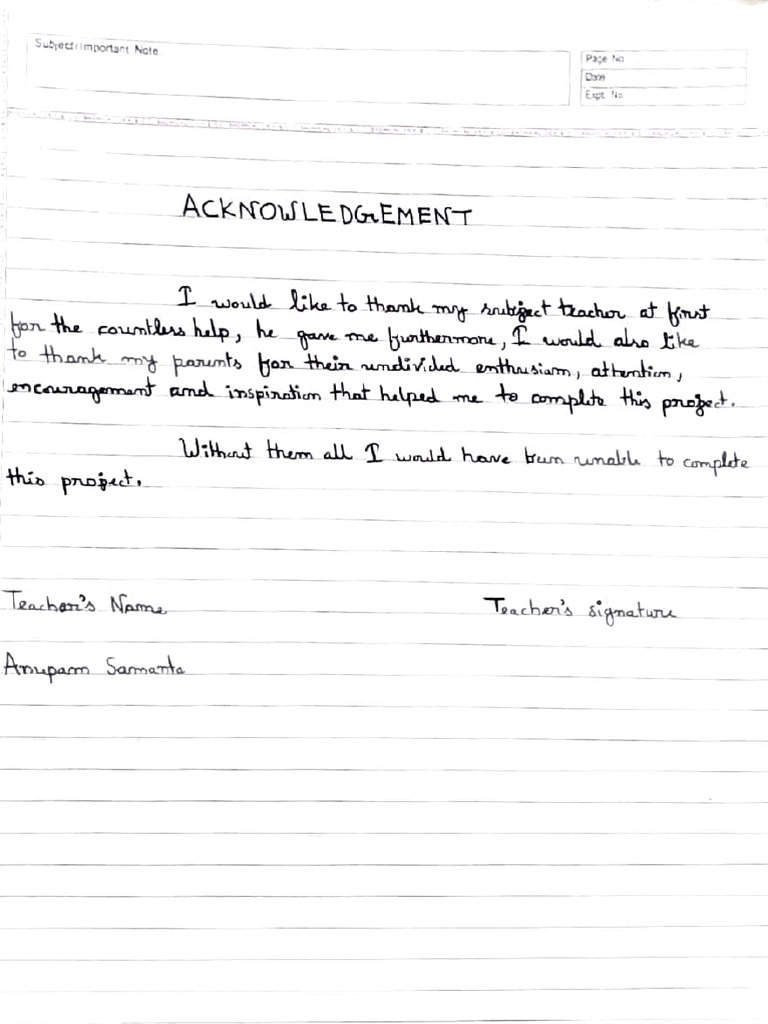 Subject/Important Note
Page No
Date
Expt. No.
ACKNOWLEDGEMENT
I would like to thank my subject teacher at first
for the countless help, he gave me furthermore, I would also like
to thank my parents for their undivided enthusiasm, attention,
encouragement and inspiration that helped me to complete this project.
Without them all I would have been unable to complete
this project.
Teacher's Name
Teacher's signature
Anupam Samanta